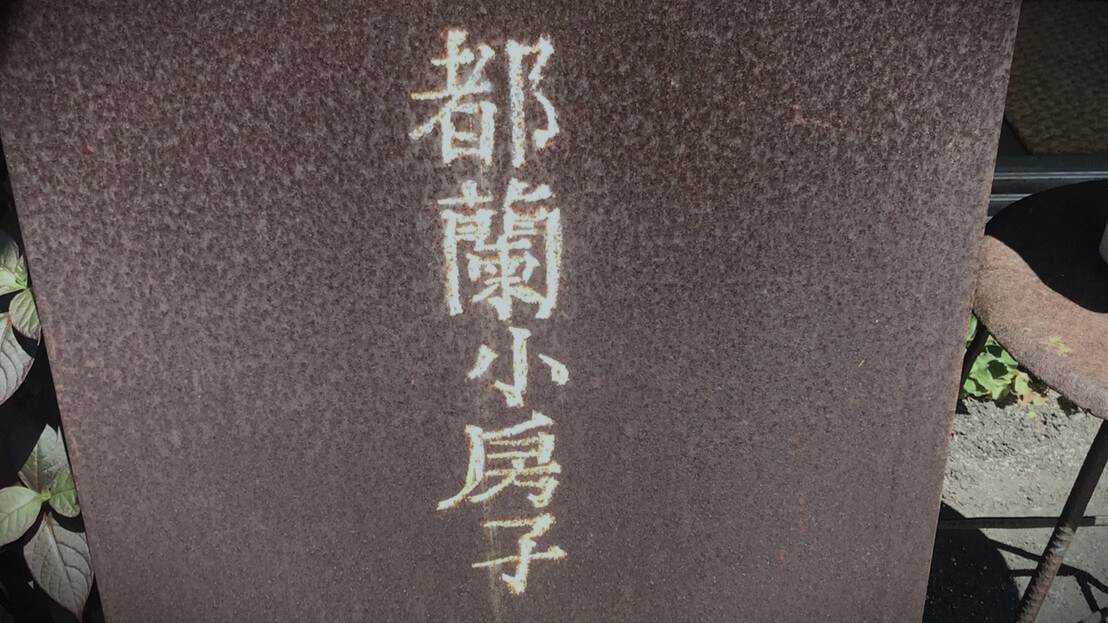 都蘭小房子